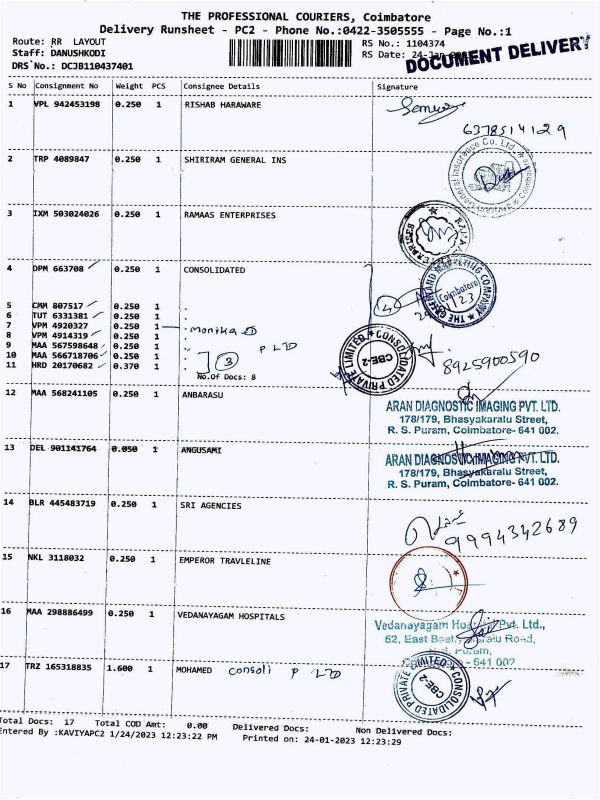 THE PROFESSIONAL COURIERS, Coimbatore
Delivery Runsheet - PC2 - Phone No.:0422-3505555 - Page No.:1
Route: RR LAYOUT
Staff: DANUSHKODI
DRS No.: DCJB110437401
RS No.: 1104374
RS Date: 24-Jan
DOCUMENT DELIVERY
S No Consignment No Weight PCS Consignee Details Signature
1 VPL 942453198 0.250 1 RISHAB HARAWARE
6378514129
2 TRP 4089847 0.250 1 SHIRIRAM GENERAL INS
3 IXM 503024026 0.250 1 RAMAAS ENTERPRISES
4 DPM 663708 0.250 1 CONSOLIDATED
5 CMM 807517 0.250 1
6 TUT 6331381 0.250 1
7 VPM 4920327 0.250 1 monika
8 VPM 4914319 0.250 1
9 MAA 567598648 0.250 1 P LTD
10 MAA 566718706 0.250 1 3
11 HRD 20170682 0.370 1
No.Of Docs: 8
4
Coimbatore
123
THE GREENLAND MARKETING COMPANY
CONSOLIDATED PRIVATE LIMITED
CBE-2
8925900590
12 MAA 568241105 0.250 1 ANBARASU
ARAN DIAGNOSTIC IMAGING PVT. LTD.
178/179, Bhasyakaralu Street,
R. S. Puram, Coimbatore- 641 002.
13 DEL 901141764 0.050 1 ANGUSAMI
ARAN DIAGNOSTIC IMAGING PVT. LTD.
178/179, Bhasyakaralu Street,
R. S. Puram, Coimbatore- 641 002.
14 BLR 445483719 0.250 1 SRI AGENCIES
9994342689
15 NKL 3118032 0.250 1 EMPEROR TRAVLELINE
16 MAA 298886499 0.250 1 VEDANAYAGAM HOSPITALS
Vedanayagam Hospital Pvt. Ltd.,
52, East Bashyakaralu Road,
R.S. Puram,
Coimbatore - 641 002
17 TRZ 165318835 1.600 1 MOHAMED consoli P LTD
CONSOLIDATED PRIVATE LIMITED
CBE-2
Total Docs: 17 Total COD Amt: 0.00 Delivered Docs: Non Delivered Docs:
Entered By :KAVIYAPC2 1/24/2023 12:23:22 PM Printed on: 24-01-2023 12:23:29